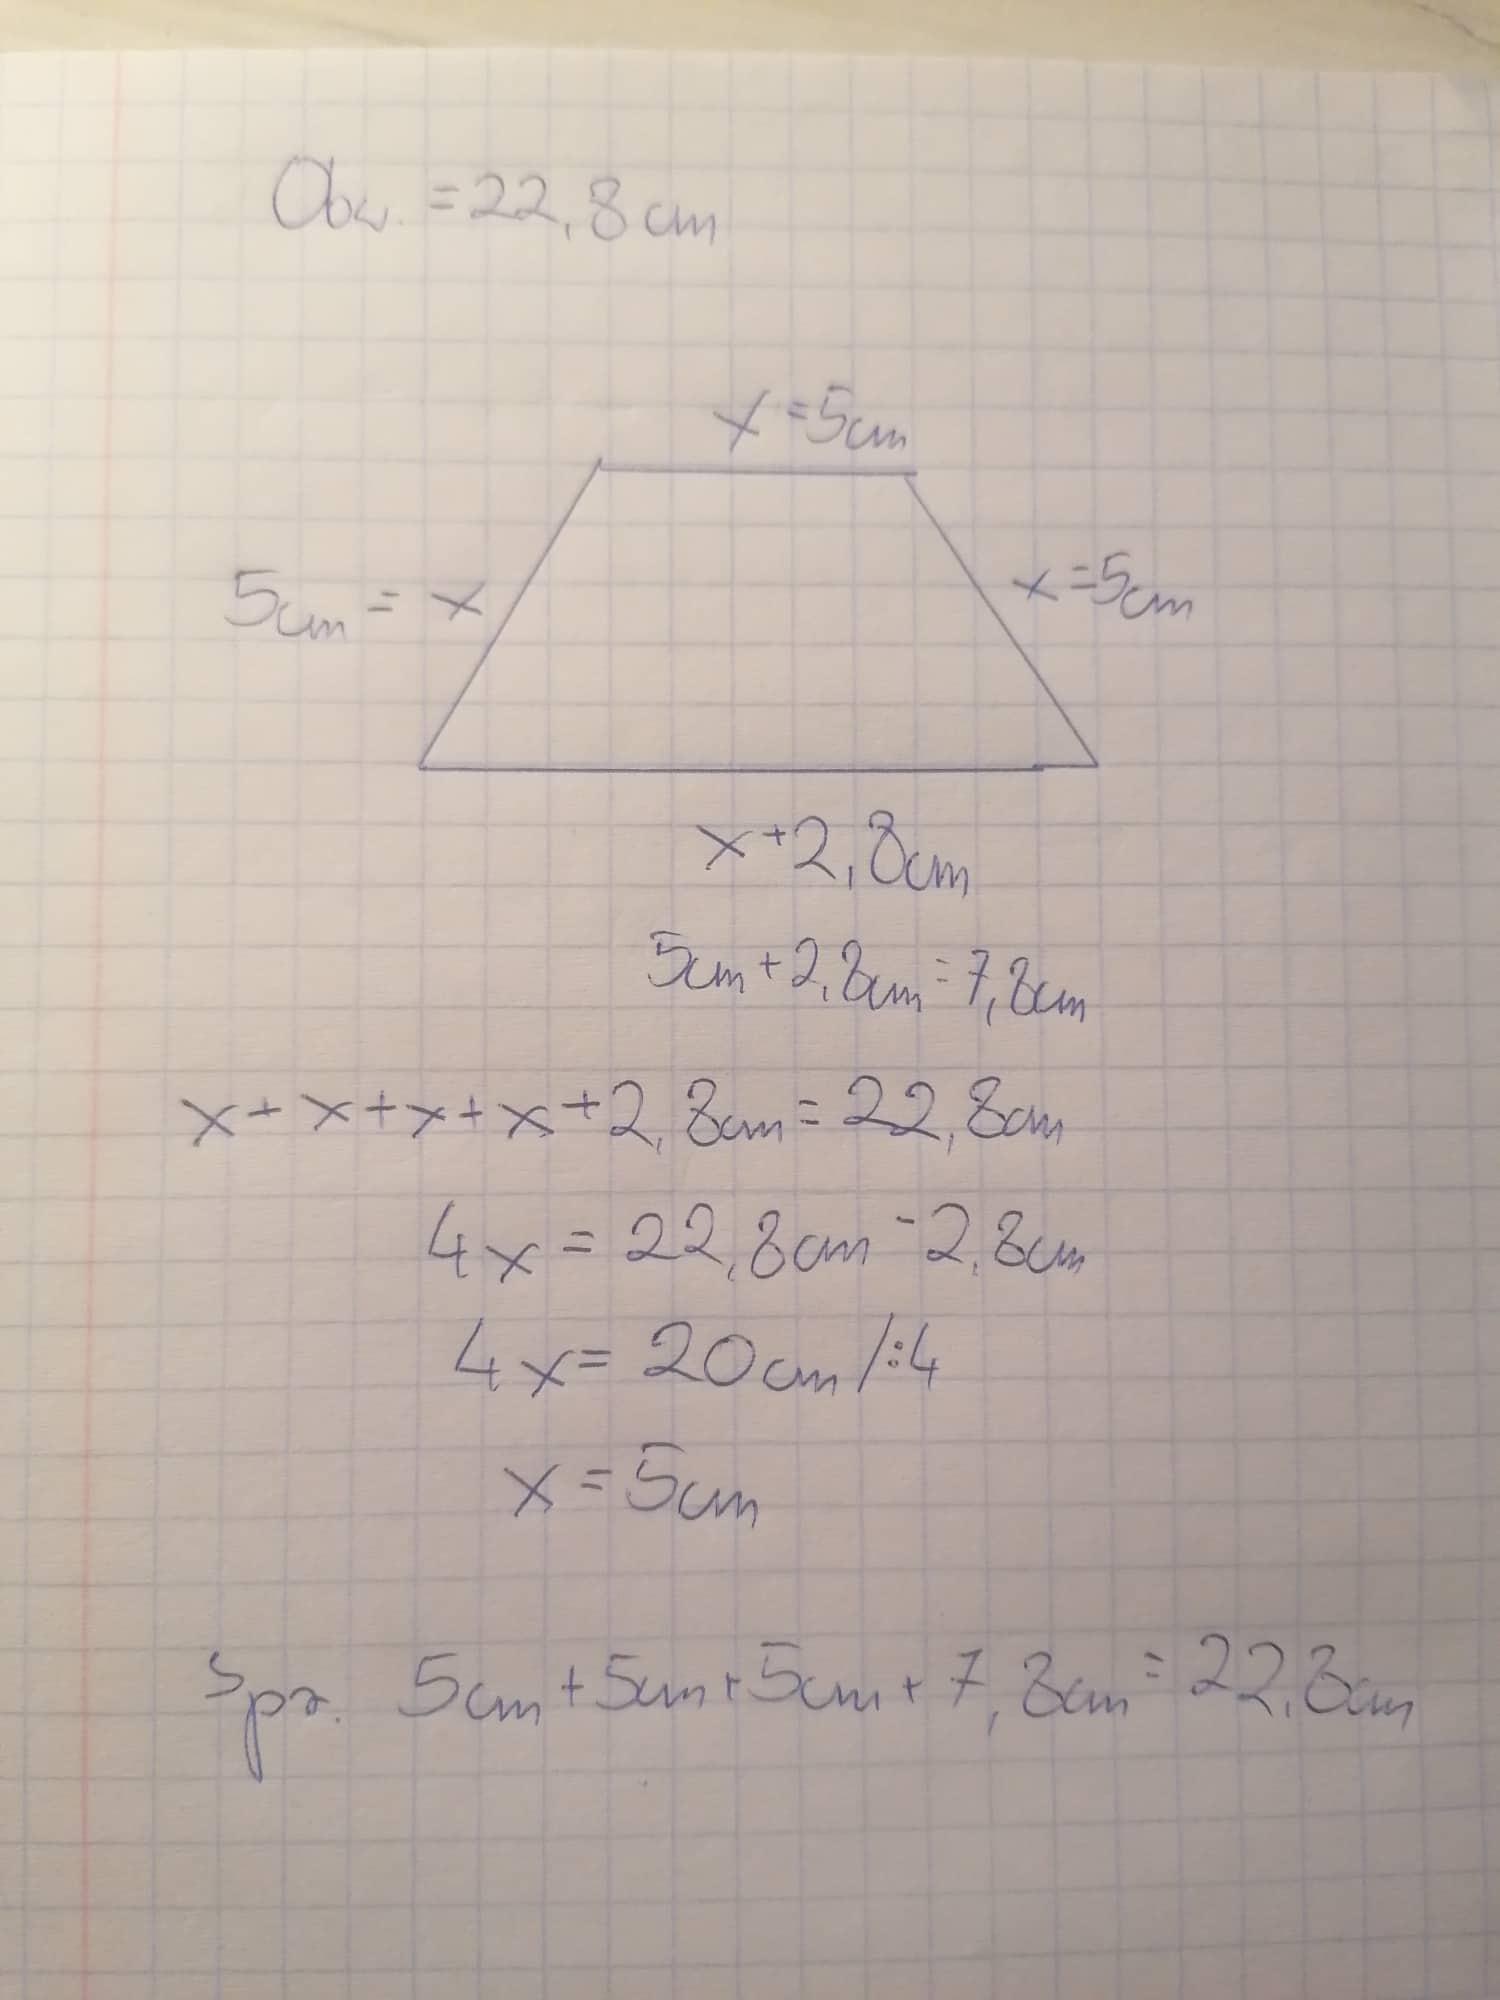 Obw. = 22,8cm
x = 5cm
5cm = x
x = 5cm
x + 2,8cm
5cm + 2,8cm = 7,8cm
x + x + x + x + 2,8cm = 22,8cm
4x = 22,8cm - 2,8cm
4x = 20cm /:4
x = 5cm
Spr. 5cm + 5cm + 5cm + 7,8cm = 22,8cm